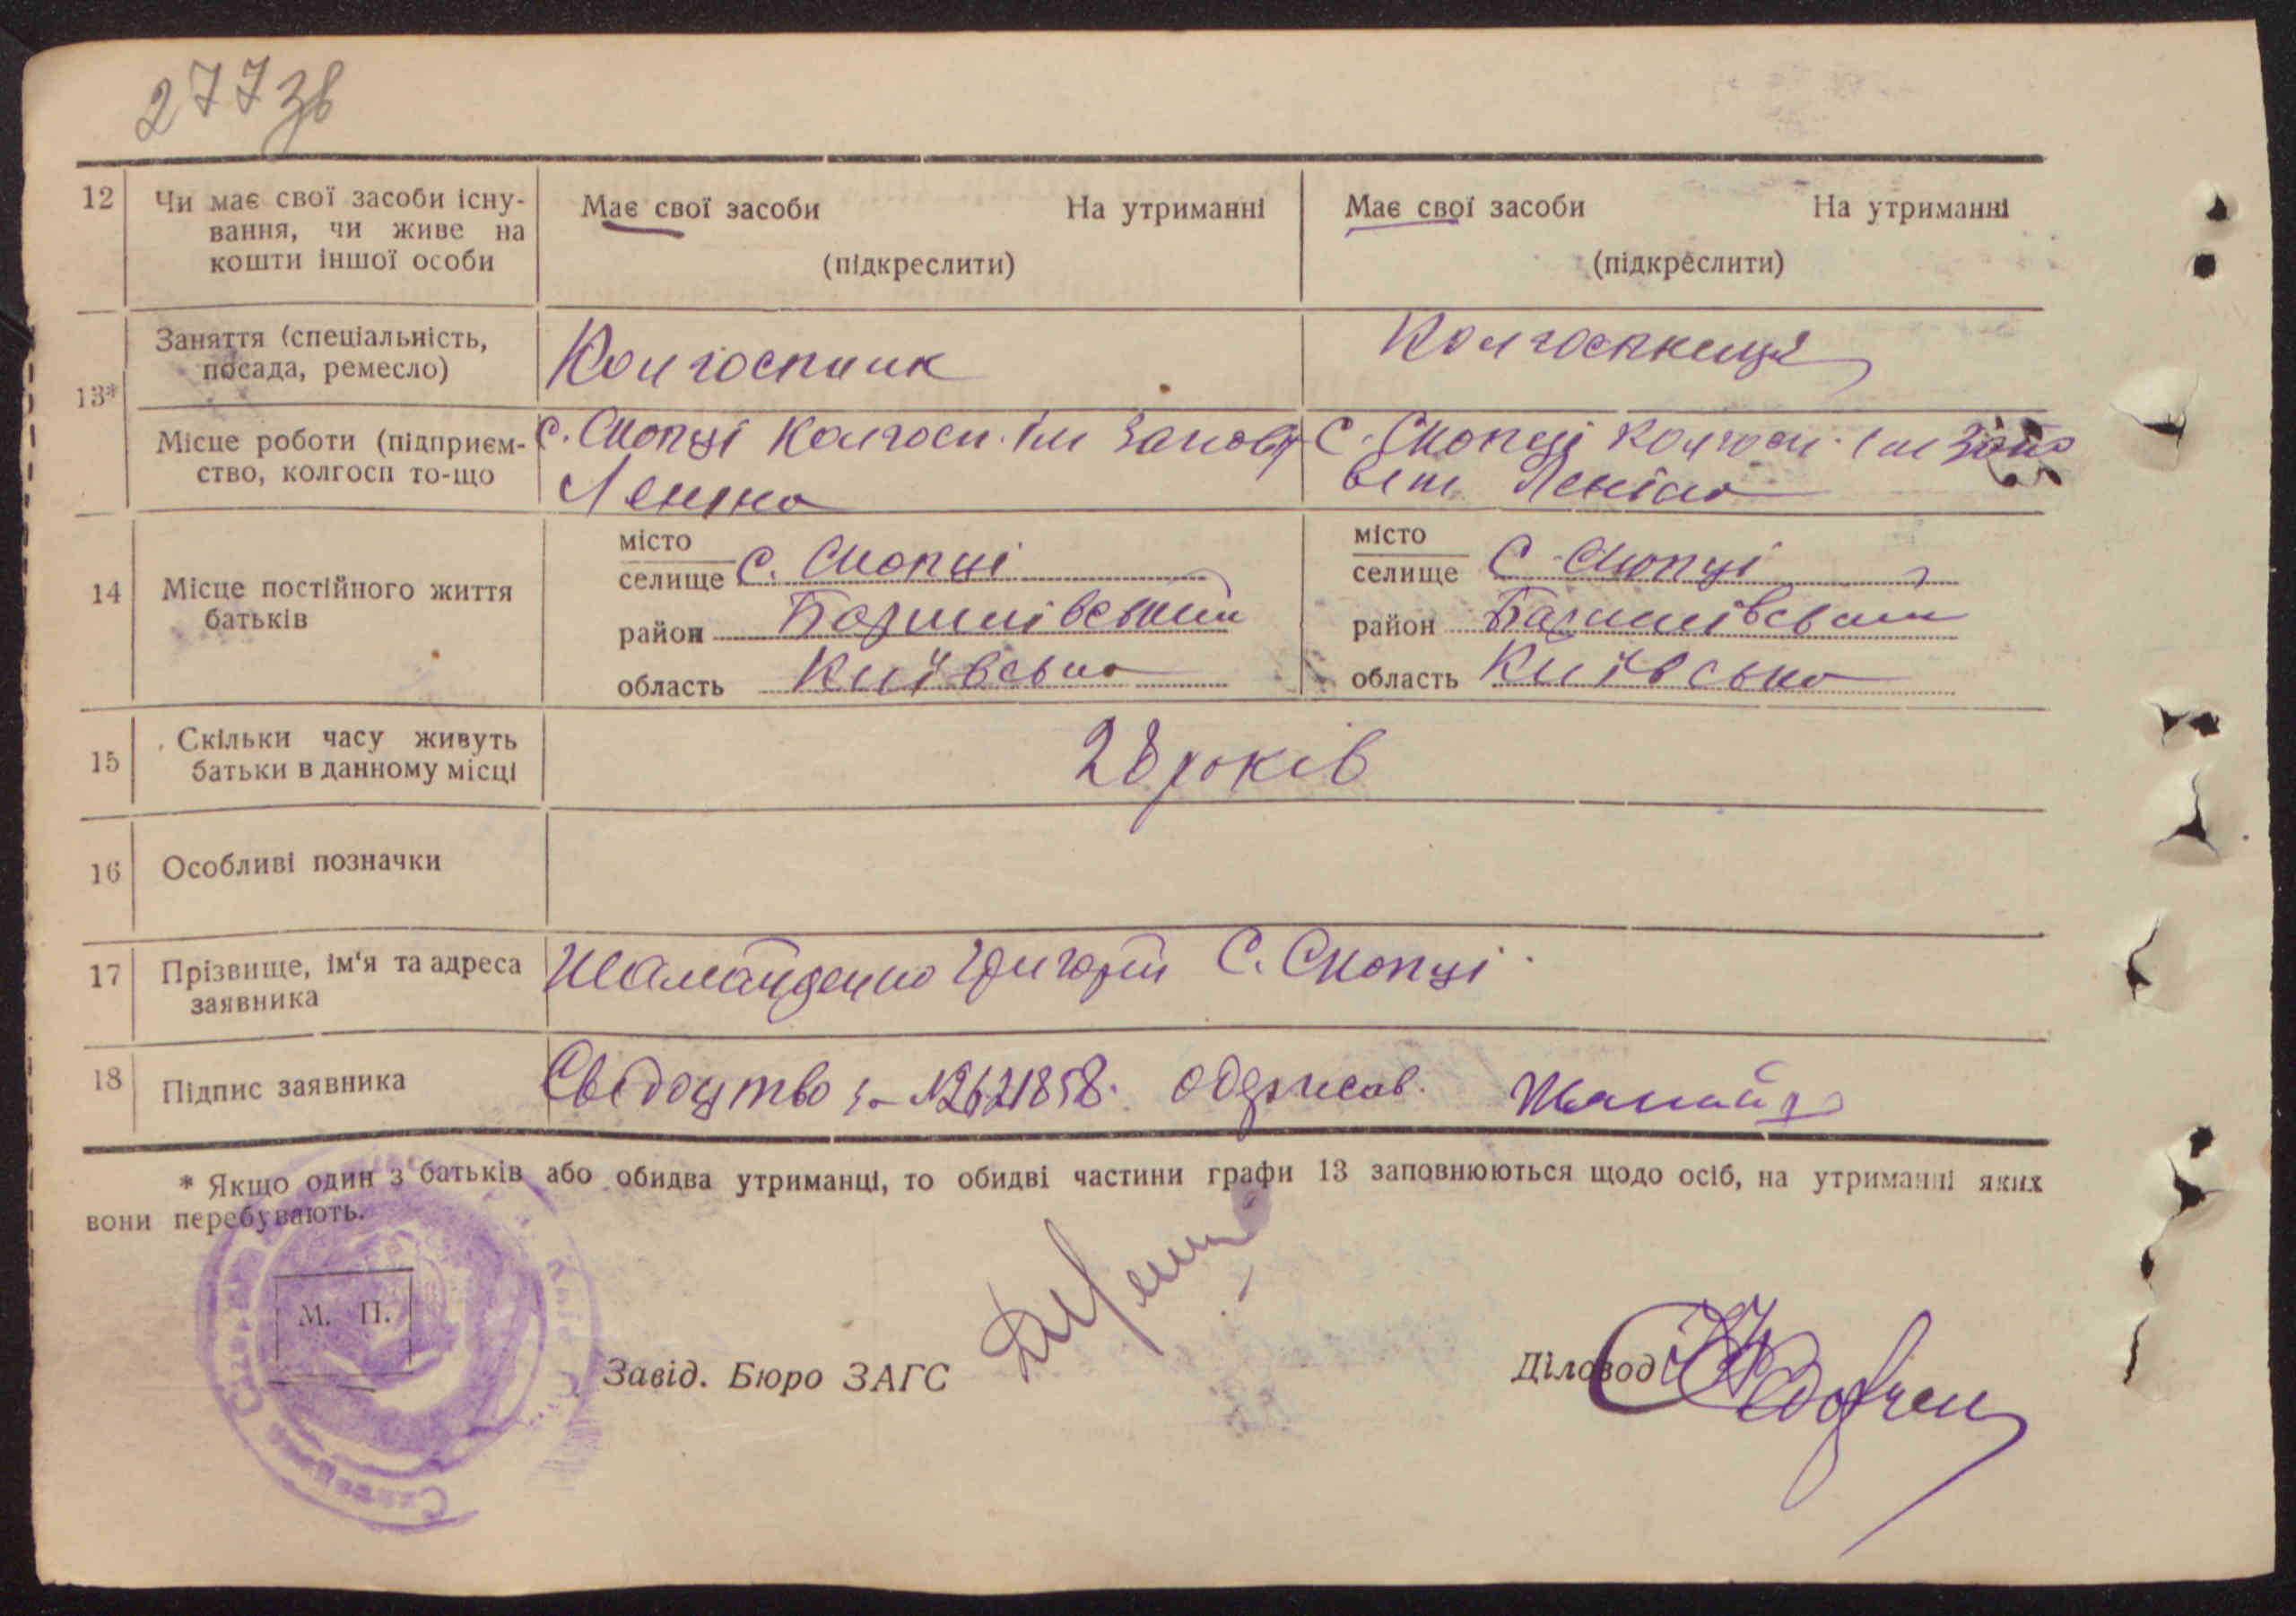 277 зв
12 Чи має свої засоби існу- Має свої засоби На утриманні Має свої засоби На утриманні
вання, чи живе на
кошти іншої особи (підкреслити) (підкреслити)
Заняття (спеціальність, Колгоспник Колгоспниця
посада, ремесло)
13*
Місце роботи (підприєм- с. Скопці Колгосп. Ім Запові С. Скопці Колгосп. Ім Запо
ство, колгосп то-що Леніна віт Леніна
місто місто
селище с. Скопці селище С. Скопці
14 Місце постійного життя
батьків
район Баришівський район Баришівський
область Київська область Київська
15 Скільки часу живуть 28 років
батьки в данному місці
16 Особливі позначки
17 Прізвище, ім'я та адреса Шамайденко Григорій С. Скопці.
заявника
18 Підпис заявника Свідоцтво за №2621858. одержав. Шамайд
* Якщо один з батьків або обидва утриманці, то обидві частини графи 13 заповнюються щодо осіб, на утриманні яких
вони перебувають.
М. П.
Завід. Бюро ЗАГС Діловод